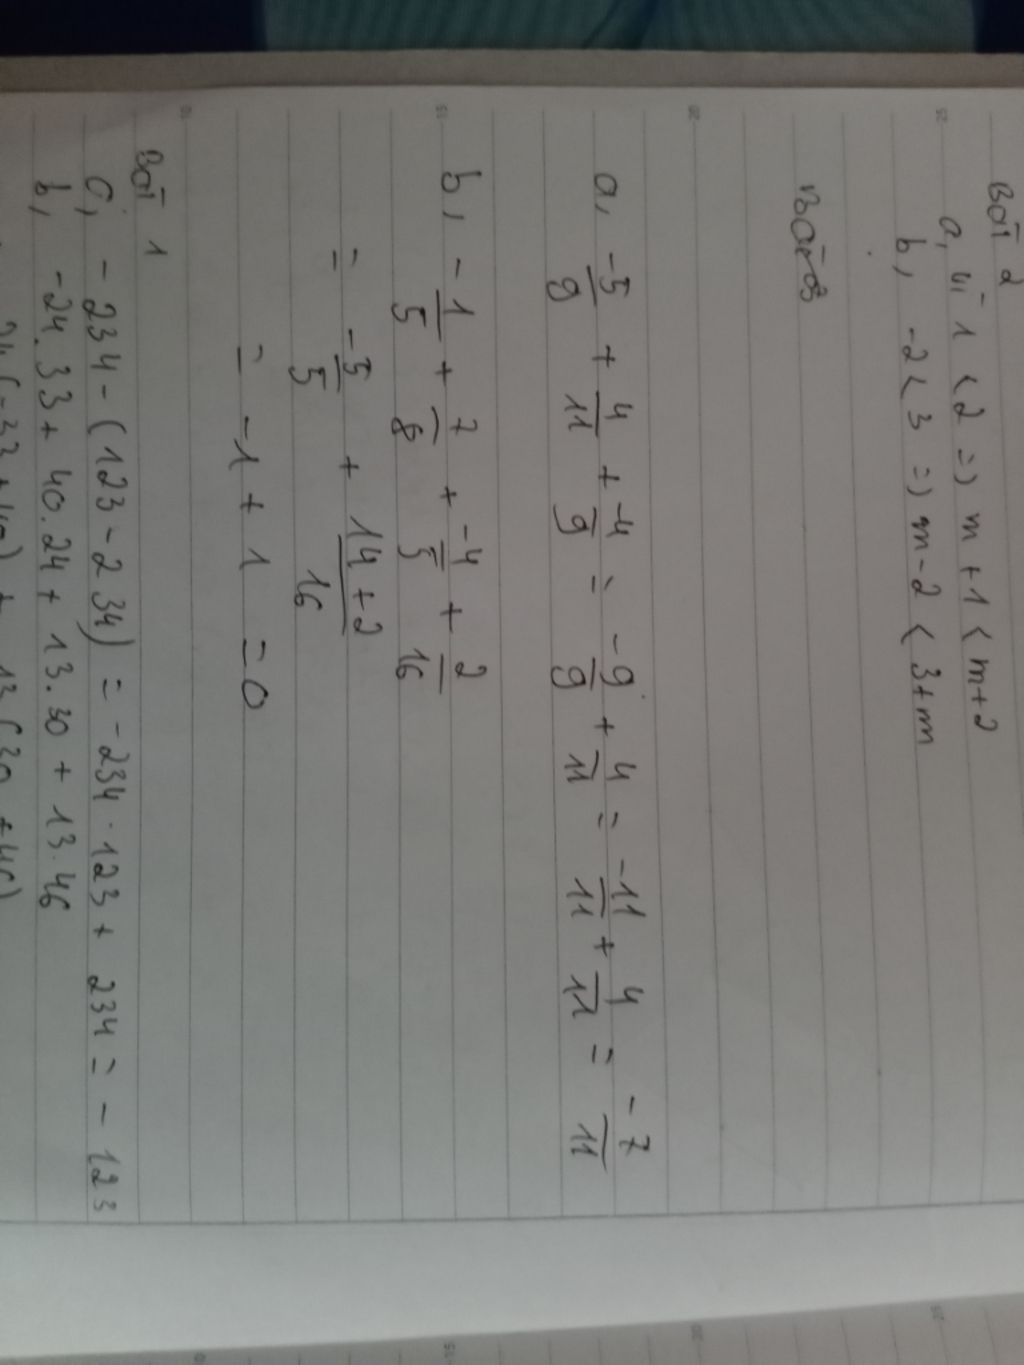 Bài 2
a, vì 1 < 2 => m + 1 < m + 2
b, -2 < 3 => m - 2 < 3 + m
a, -5/9 + 4/11 + -4/9 = -9/9 + 4/11 = -11/11 + 4/11 = -7/11
b, -1/5 + 7/8 + -4/5 + 2/16
= -5/5 + 14+2/16
= -1 + 1 = 0
Bài 1
C, - 234 - (123 - 234) = -234 - 123 + 234 = - 123
b, -24.33 + 40.24 + 13.30 + 13.46